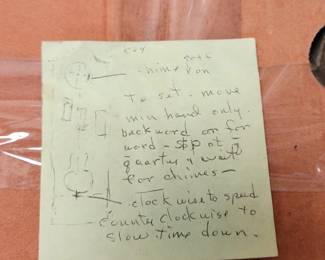 chime on
To set - move
min hand only.
backword or for
word - stop at
quarter & wait
for chimes -
clockwise to speed
counter clockwise to
slow time down.